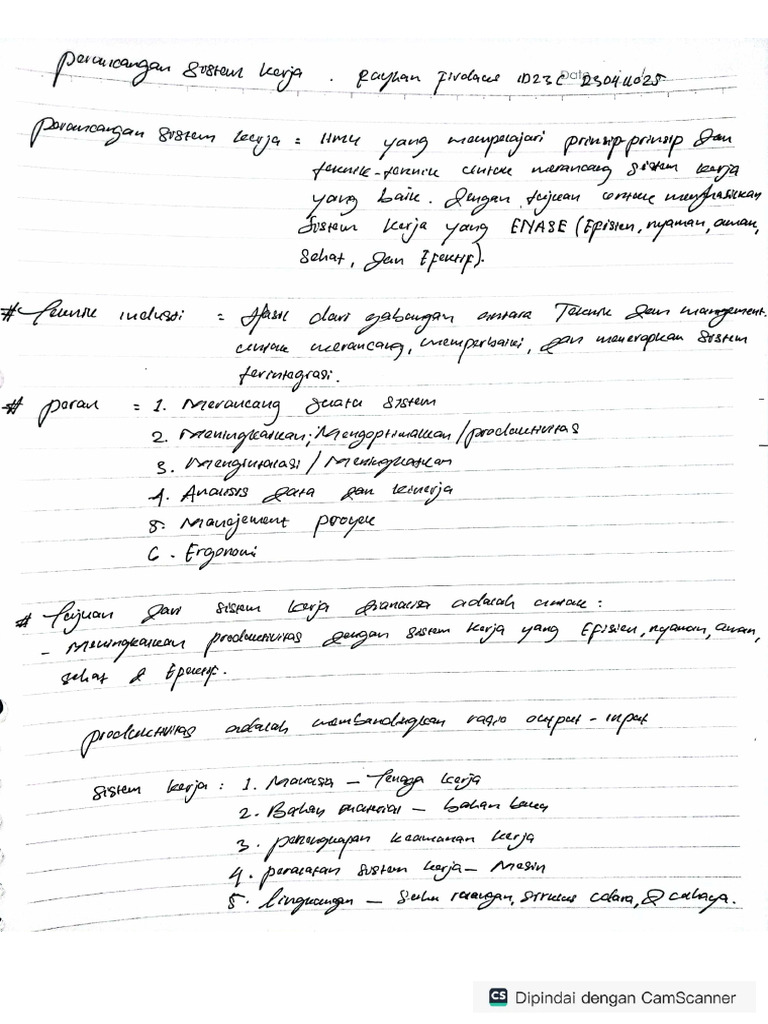 Perancangan Sistem Kerja . Rayhan Firdaus ID23C Date 23041025
Perancangan sistem kerja = Ilmu yang mempelajari prinsip-prinsip dan
teknik-teknik untuk merancang sistem kerja
yang baik. dengan tujuan untuk menghasilkan
Sistem kerja yang ENASE (Efisien, nyaman, aman,
Sehat, dan Efektif).
# Teknik industri = Hasil dari gabungan antara Teknik dan management.
untuk merancang, memperbaiki, dan menerapkan sistem
terintegrasi.
# peran = 1. Merancang suatu sistem
2. Meningkatkan; Mengoptimalkan / produktivitas
3. / Meningkatkan
4. Analisis data dan kinerja
5. Manajement proyek
6. Ergonomi
# Tujuan dari sistem kerja dianalisa adalah untuk :
- Meningkatkan produktivitas dengan sistem kerja yang Efisien, nyaman, aman,
sehat & Efektif.
produktivitas adalah membandingkan rasio output - input
sistem kerja : 1. Manusia - Tenaga kerja
2. Bahan material - bahan baku
3. perlengkapan keamanan kerja
4. peralatan sistem kerja - Mesin
5. lingkungan - suhu ruangan, sirkulasi udara, & cahaya.
CS Dipindai dengan CamScanner